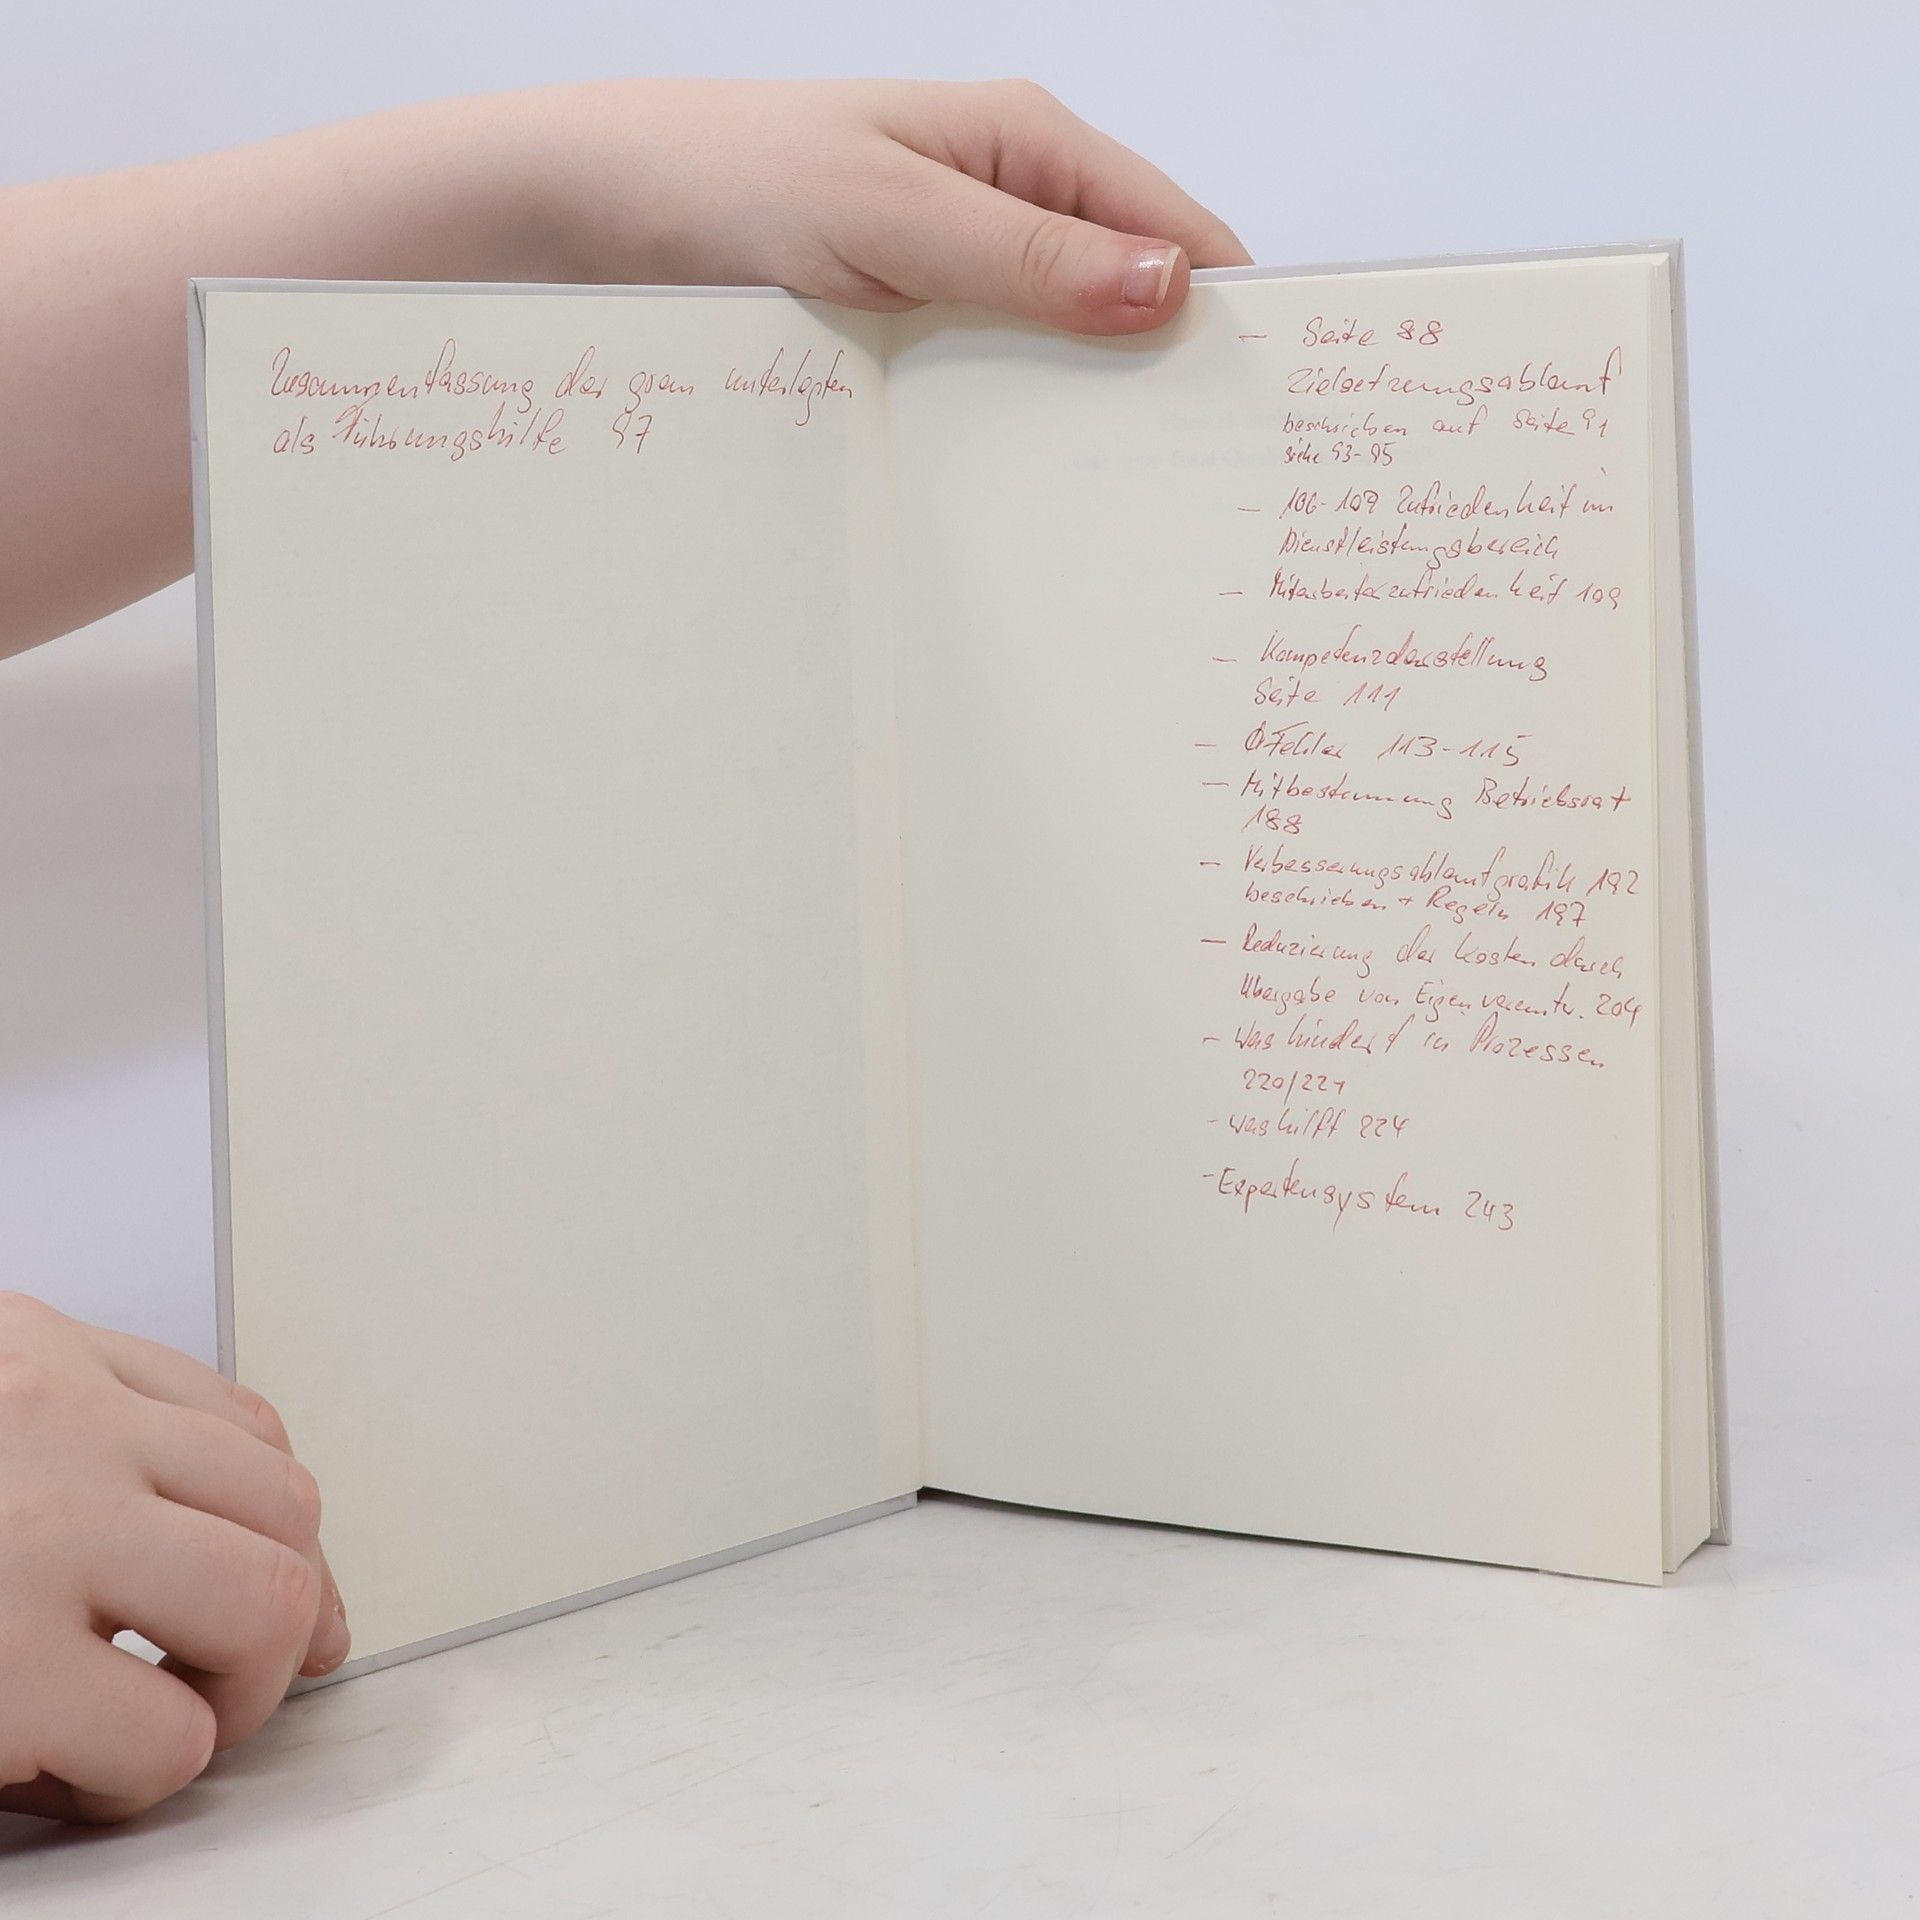 Zusammenfassung der grau unterlegten
als Führungshilfe 97
— Seite 88
Zielsetzungsablauf
beschrieben auf Seite 91
siehe 93-95
— 106-109 Zufriedenheit im
Dienstleistungsbereich
— Mitarbeiterzufriedenheit 109
— Kompetenzdarstellung
Seite 111
— Fehler 113-115
— Mitbestimmung Betriebsrat
188
— Verbesserungsablaufgrafik 192
beschrieben + Regeln 197
— Reduzierung der Kosten durch
Übergabe von Eigenverantw. 204
- Was hindert in Prozessen
220/221
- was hilft 224
- Expertensystem 243